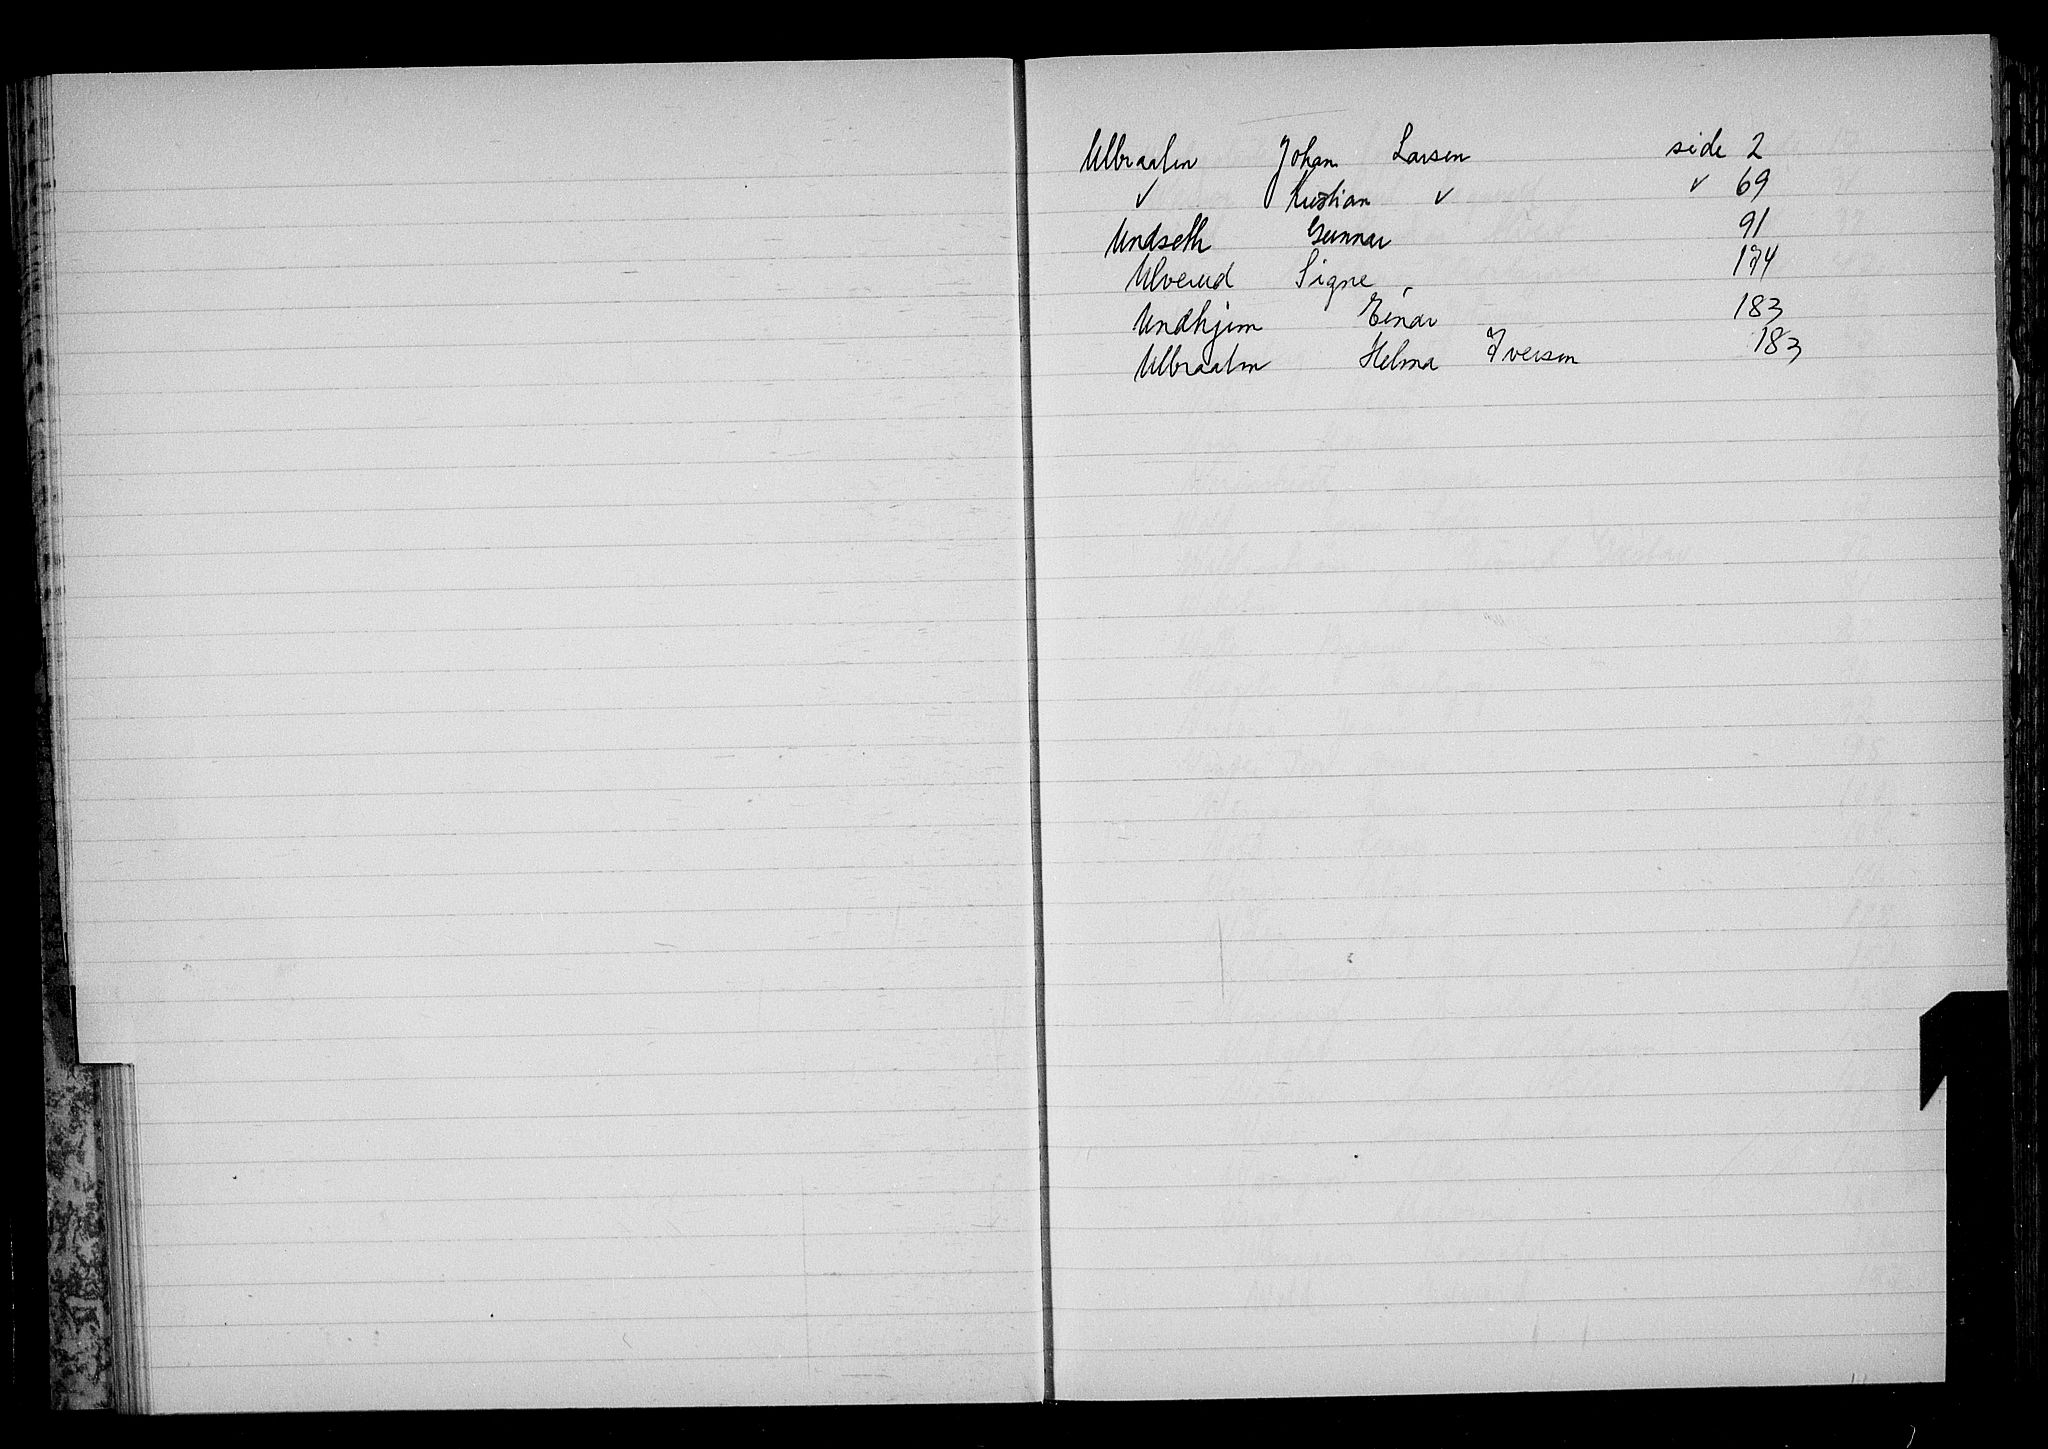 Ulbraaten Johan Larsen side 2
✓ Kristian ✓ ✓ 69
Undseth Gunnar 91
Ulverud Signe 174
Undhjem Einar 183
Ulbraaten Helma Iversen 183